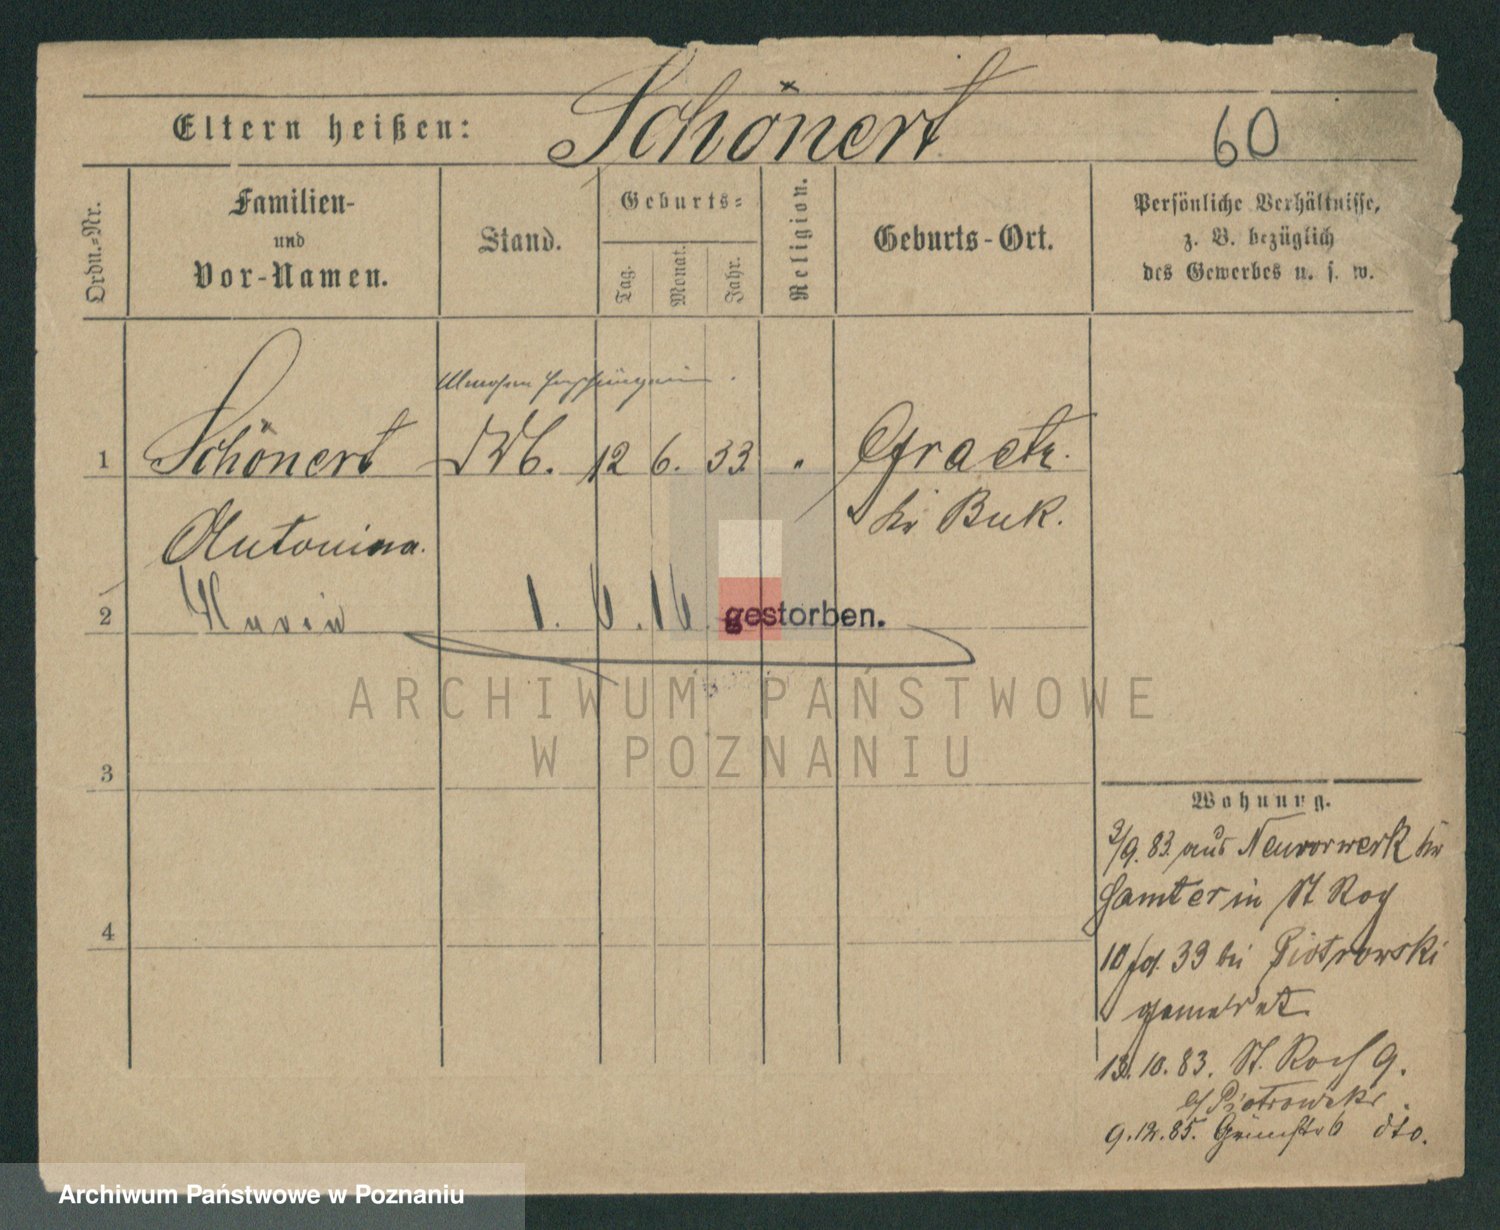 Schönert
Eltern heißen:
60
Ordn.-Nr.
Familien-
und
Vor-Namen.
Stand.
Geburts-
Tag.
Monat.
Jahr.
Religion.
Geburts-Ort.
Persönliche Verhältnisse,
z. B. bezüglich
des Gewerbes u. s. w.
Almosen Empfängerin.
1 Schönert 12 6. 33. " Graetz.
Kr Buk.
Antonina.
2 1. 6. 16 gestorben.
ARCHIWUM PAŃSTWOWE
W POZNANIU
3
Wohnung.
3/9. 83. aus Neuvorwerk Kr
Samter in St Roch
4
10/9. 33 bei Piotrowski
gemeldet
13. 10. 83. St. Roch 9.
b/ Piotrowski.
9. 12. 85. Grünstr 6 dto.
Archiwum Państwowe w Poznaniu